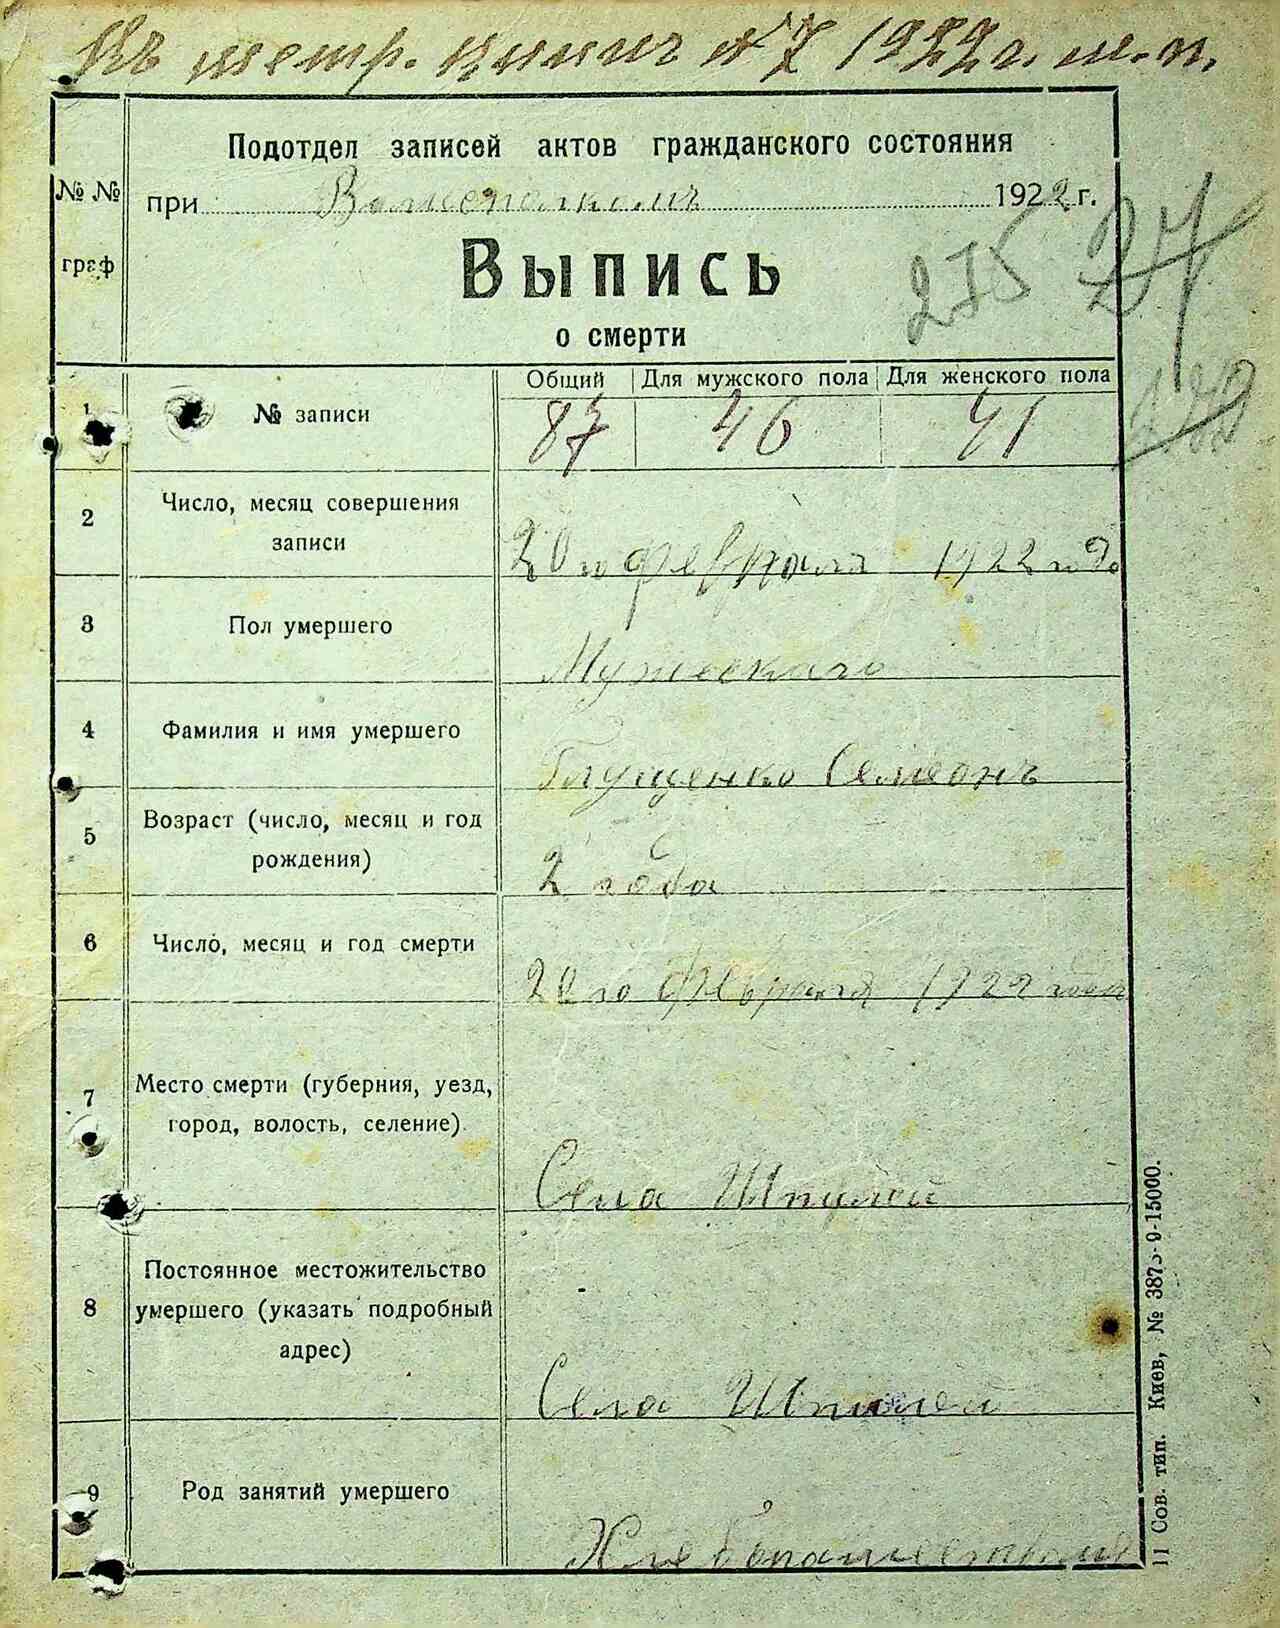 Къ метр. книгѣ № 7 1922 г. м. п.
Подотдел записей актов гражданского состояния
№ № при Волисполкомѣ 1922 г.
граф
Выпись
о смерти
275 27
Общий Для мужского пола Для женского пола
1 № записи 87 46 41
2 Число, месяц совершения
записи
20 го февраля 1922 года
3 Пол умершего
Мужескаго
4 Фамилия и имя умершего
Глущенко Семеонъ
5 Возраст (число, месяц и год
рождения)
2 года
6 Число, месяц и год смерти
20 го февраля 1922 года
7 Место смерти (губерния, уезд,
город, волость, селение)
Села Шполой
8 Постоянное местожительство
умершего (указать подробный
адрес)
Села
9 Род занятий умершего
Хлебопашеством
11 Сов. тип. Киев, № 3875-9-15000.